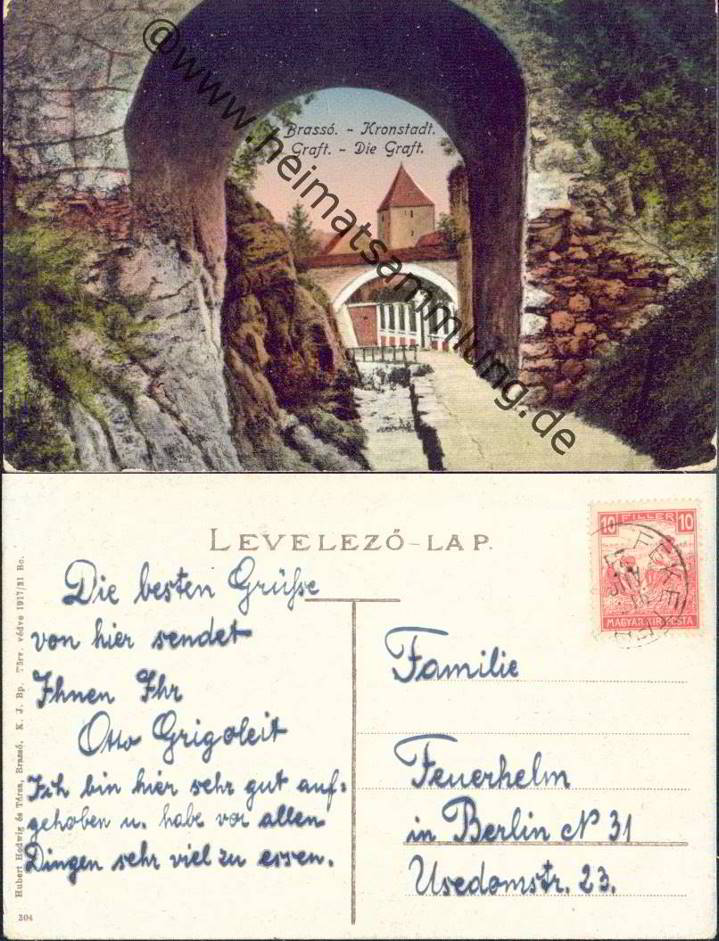 @www.heimatsammlung.de
Brassó. - Kronstadt.
Graft. - Die Graft.
LEVELEZŐ-LAP.
10 FILLER 10
MAGYAR KIR POSTA
Die besten Grüsse
von hier sendet
Ihnen Ihr
Otto Grigoleit
Ich bin hier sehr gut auf=
gehoben u. habe vor allen
Dingen sehr viel zu essen.
Familie
Feuerhelm
in Berlin N 31
Usedomstr. 23.
Hubert Hedwig és Társa, Brassó. K. J. Bp. Törv. védve 1917/21 Bc.
204